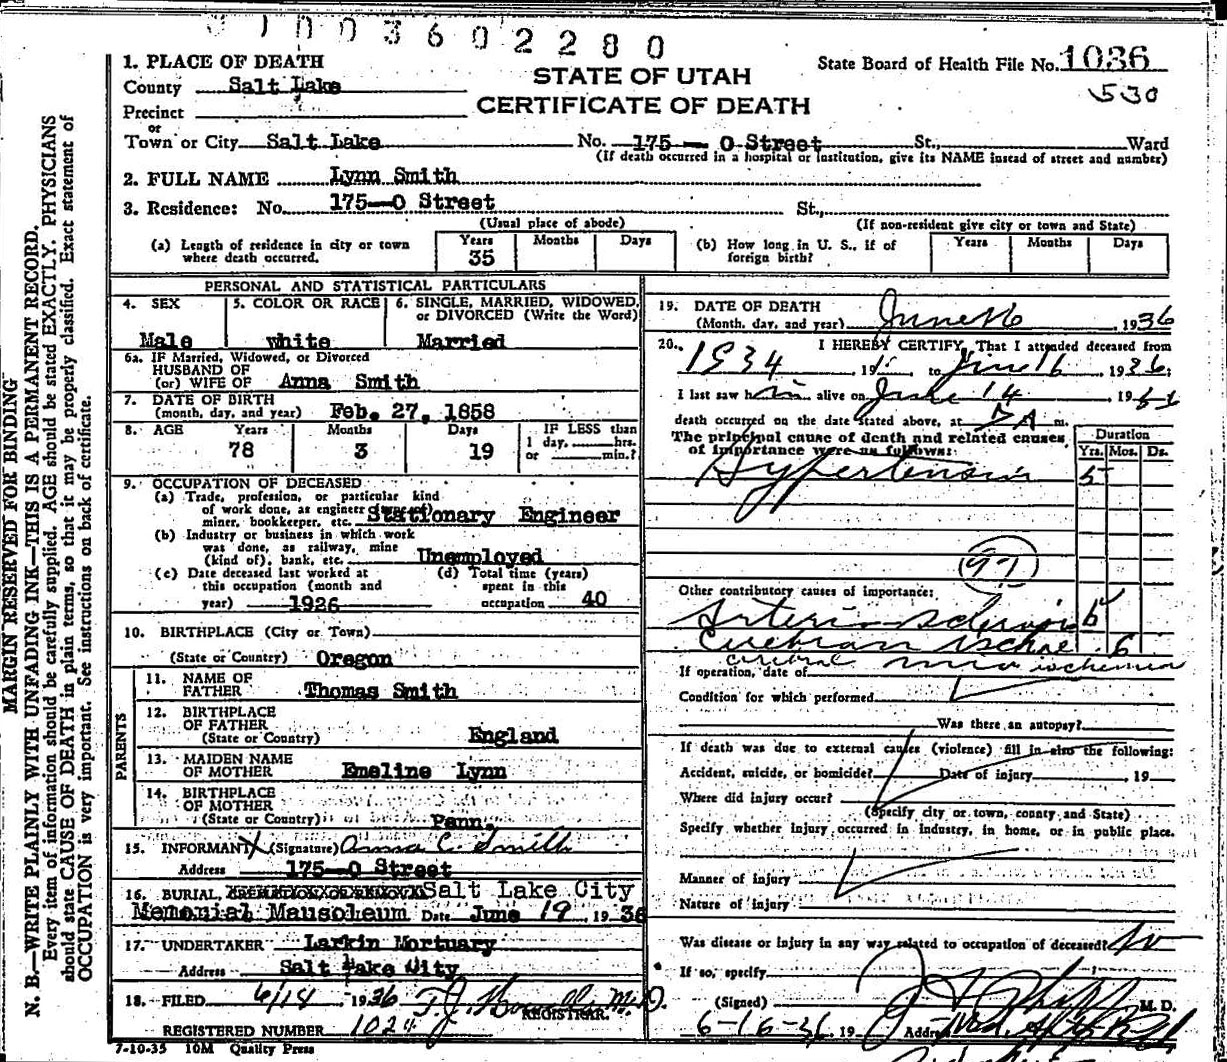 1003602280
1. PLACE OF DEATH
County Salt Lake
STATE OF UTAH
State Board of Health File No. 1036
530
Precinct
CERTIFICATE OF DEATH
or
Town or City Salt Lake No. 175 - O Street St., Ward
(If death occurred in a hospital or institution, give its NAME instead of street and number)
2. FULL NAME Lynn Smith
3. Residence: No. 175-O Street St.,
(Usual place of abode) (If non-resident give city or town and State)
(a) Length of residence in city or town where death occurred. Years 35 Months Days
(b) How long in U. S., if of foreign birth? Years Months Days
PERSONAL AND STATISTICAL PARTICULARS
4. SEX Male
5. COLOR OR RACE white
6. SINGLE, MARRIED, WIDOWED, or DIVORCED (Write the Word) Married
6a. IF Married, Widowed, or Divorced
HUSBAND OF
(or) WIFE OF Anna Smith
7. DATE OF BIRTH
(month, day, and year) Feb. 27, 1858
8. AGE Years 78 Months 3 Days 19
IF LESS than
1 day, hrs.
or min.?
9. OCCUPATION OF DECEASED
(a) Trade, profession, or particular kind
of work done, as engineer
miner, bookkeeper, etc. Stationary Engineer
(b) Industry or business in which work
was done, as railway, mine
(kind of), bank, etc. Unemployed
(c) Date deceased last worked at
this occupation (month and
year) 1926
(d) Total time (years)
spent in this
occupation 40
10. BIRTHPLACE (City or Town)
(State or Country) Oregon
PARENTS
11. NAME OF
FATHER Thomas Smith
12. BIRTHPLACE
OF FATHER
(State or Country) England
13. MAIDEN NAME
OF MOTHER Emeline Lynn
14. BIRTHPLACE
OF MOTHER
(State or Country) Penn.
15. INFORMANT X (Signature) Anna C. Smith
Address 175-O Street
16. BURIAL, CREMATION OR REMOVAL Salt Lake City
Memorial Mausoleum Date June 19, 1936
17. UNDERTAKER Larkin Mortuary
Address Salt Lake City
18. FILED 6/18 1936 T.J. Howells M.D.
REGISTRAR.
REGISTERED NUMBER 1024
7-10-35 10M Quality Press
19. DATE OF DEATH
(Month, day, and year) June 16, 1936
20. I HEREBY CERTIFY, That I attended deceased from
1934 19 to June 16 1936;
I last saw him alive on June 14 19
death occurred on the date stated above, at A m.
The principal cause of death and related causes
of importance were as follows:
Duration
Yrs. Mos. Ds.
Hypertension 5
97
Other contributory causes of importance:
Arterio Sclerosis
6
cerebral ischemia
If operation, date of
Condition for which performed
Was there an autopsy?
If death was due to external causes (violence) fill in also the following:
Accident, suicide, or homicide? Date of injury , 19
Where did injury occur?
(Specify city or town, county and State)
Specify whether injury occurred in industry, in home, or in public place.
Manner of injury
Nature of injury
Was disease or injury in any way related to occupation of deceased? No
If so, specify
(Signed) M. D.
6-16-36, 19 Address
MARGIN RESERVED FOR BINDING
N. B.—WRITE PLAINLY WITH UNFADING INK—THIS IS A PERMANENT RECORD.
Every item of information should be carefully supplied. AGE should be stated EXACTLY. PHYSICIANS
should state CAUSE OF DEATH in plain terms, so that it may be properly classified. Exact statement of
OCCUPATION is very important. See instructions on back of certificate.